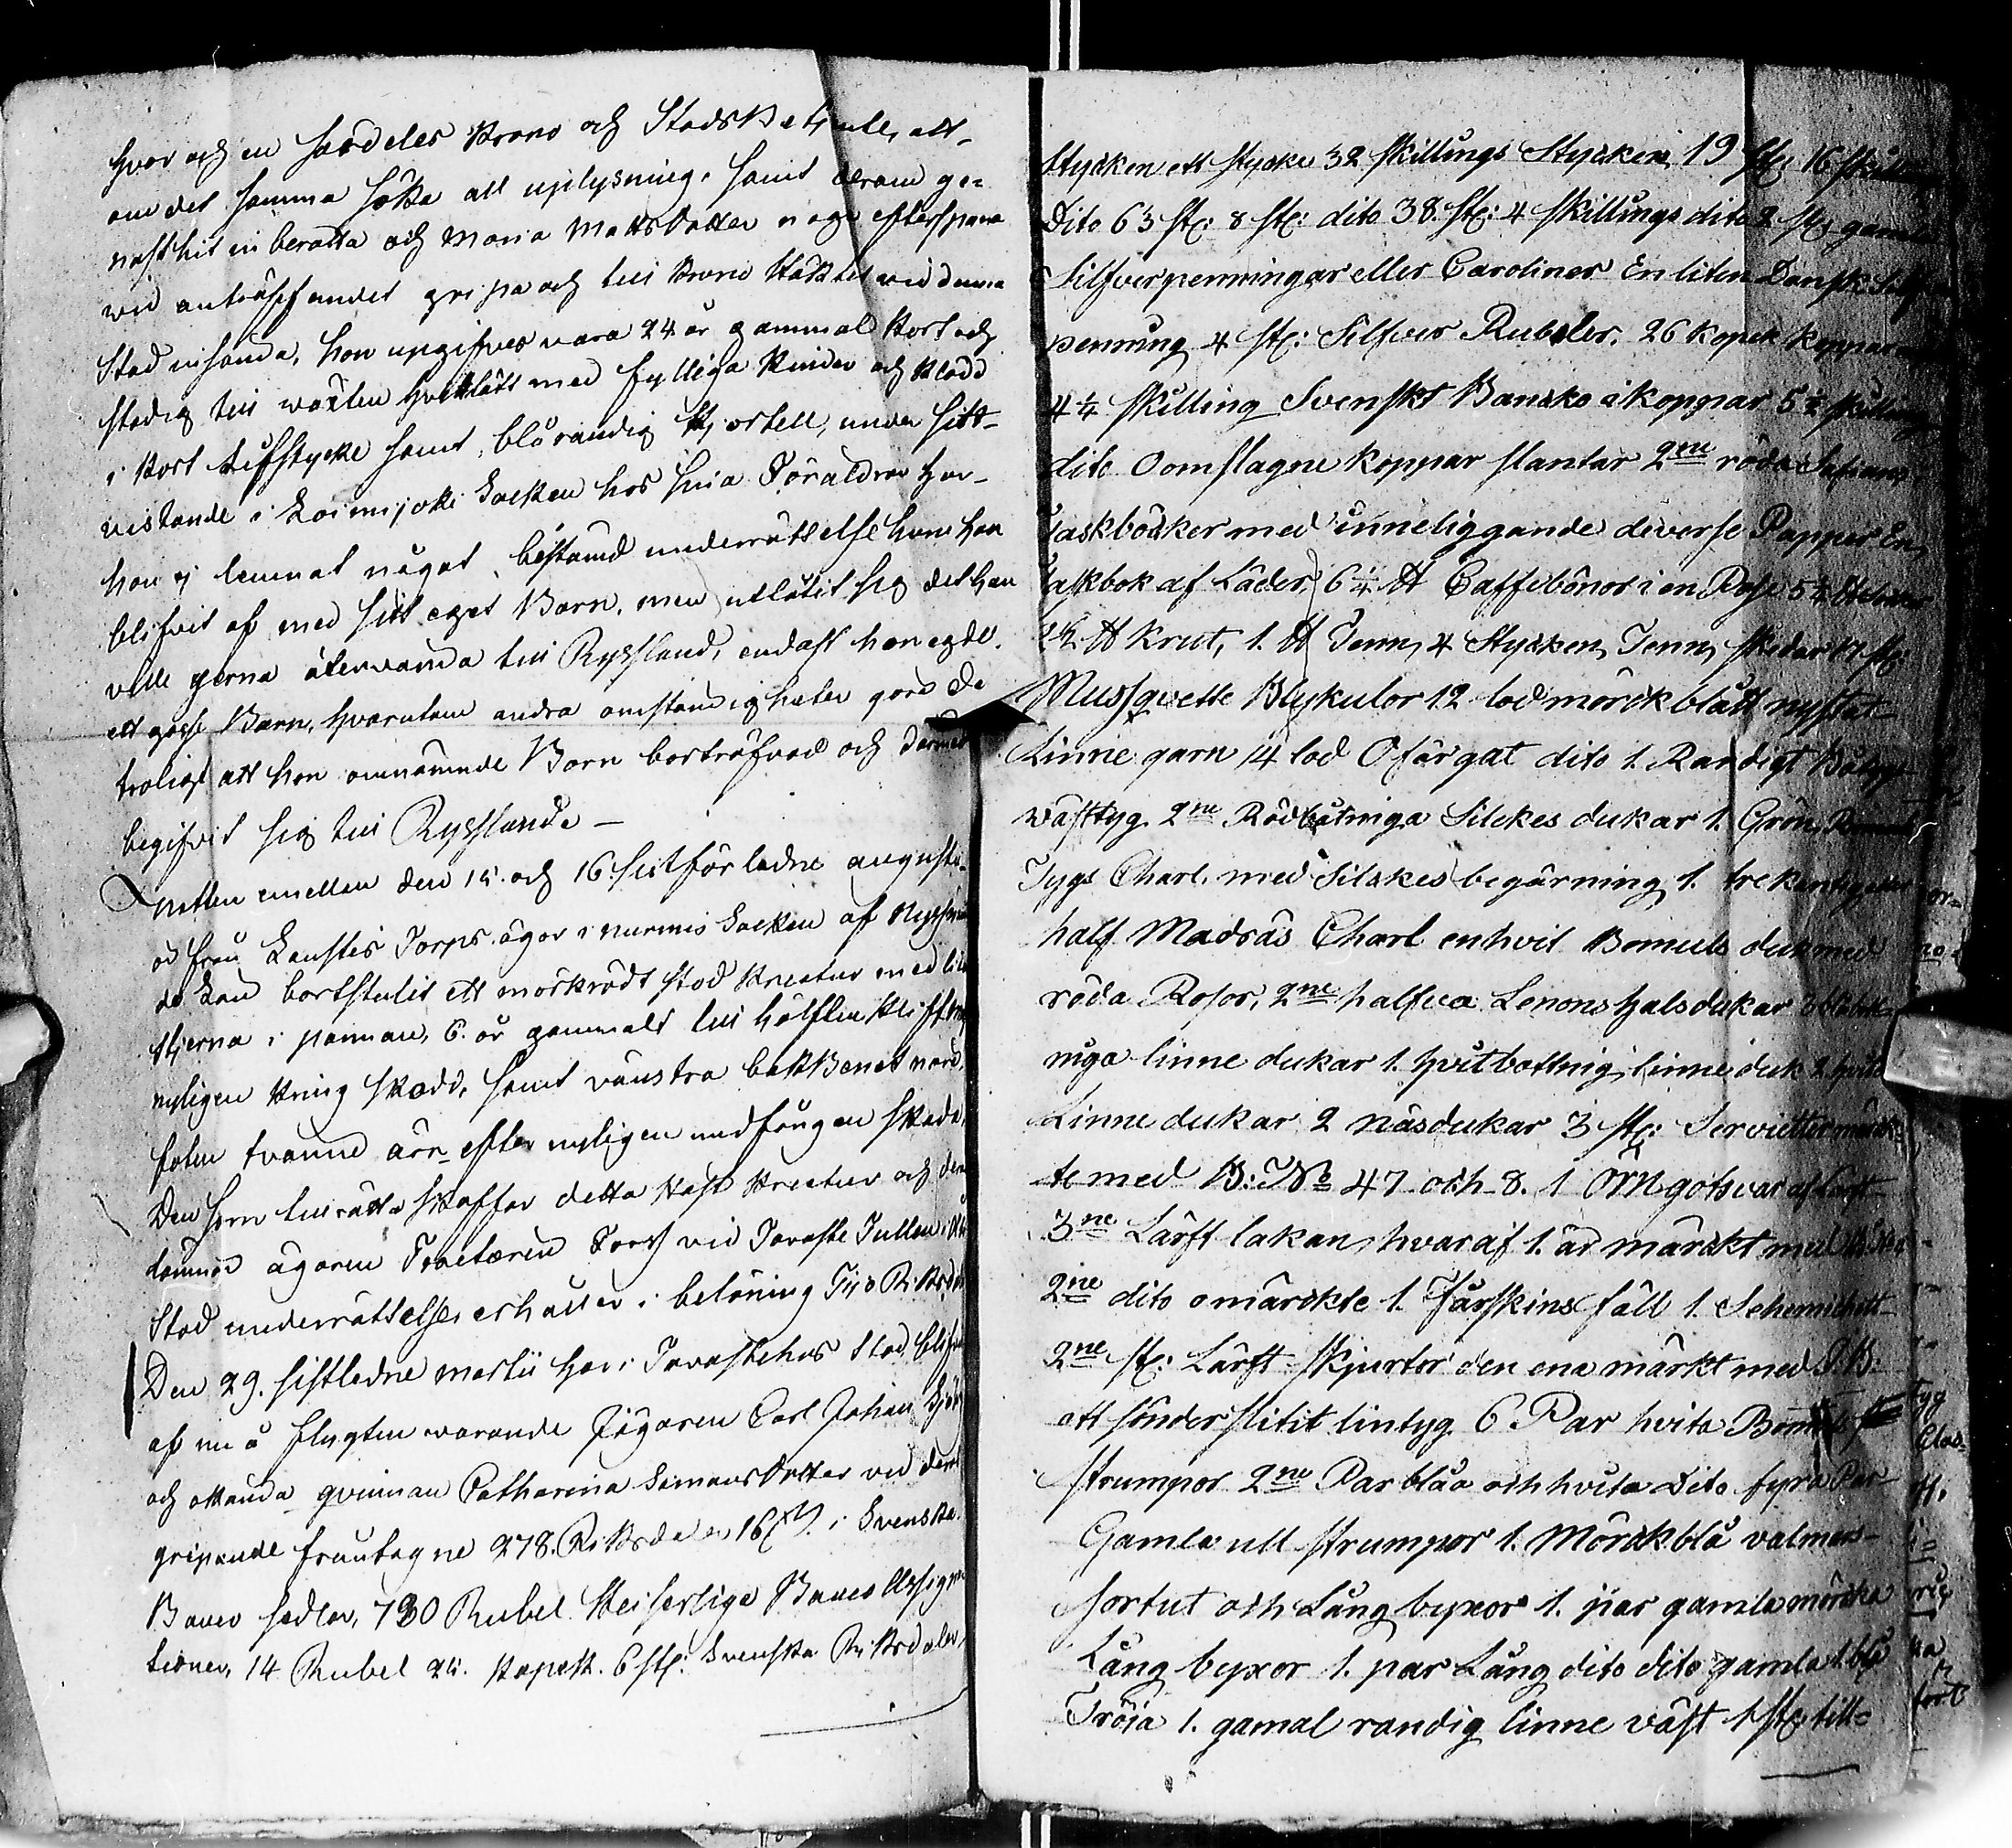 hvar och en särdeles Krono och StadsBetjente, att
om det samma söka all uplysning, samt derom ge=
nast hit in beratta och Maria Mattsdotter noga efterspana
vid anträffandet gripa och till Krono Häktet vid denna
Stad insända, hon upgifves vara 24 år gammal kort och
stadig till wäxten hvitlätt med fylliga Kinder och Klädd
i kort lifstycke samt blårandig Kjortell, under sitt
vistande i Loimijoki Socken hos sina Föräldrar har
hon ej lemnat något bestämd underrättelse hvar hon
blifvit af med sitt eget Barn, men utlåtit sig det hon
ville gerna återvända till Ryssland, endast hon egde
ett gosse Barn, hvarutom andra omständigheter göra de
troligt att hon omnämnde Barn bortröfvad och dermed
begifvit sig till Ryssland. —
Natten emellan den 15. och 16 sistförledne augusti
är från Laustis Torps ägor i Nurmis Socken af
bortstulit ett mörkrödt Stod Kreatur med liten
stjerna i pannan, 6. år gammalt till hälften
nyligen kring skodd, samt vänstra bakbenet
foten tvänne ärr efter nyligen undfången skada,
Den som tillrätta skaffar detta Häst Kreatur och den
lämnar ägaren Tracteuren Fors vid Tavaste Tullen i Åbo
Stad underrättelse erhåller i belöning Tijo Riksdaler
Den 29. sistledne martii har i Tavastehus Stad blifvit
af en å flygten warande Jägaren Carl Johan
och okända qvinnan Catharina Simonsdotter vid deras
gripande fråntagne 278. Riksdaler 16 i Svenska
Banco sedlar, 730 Rubel Keiserlige Banco Assigna
tioner, 14 Rubel 25. kopek. 6 st: Svenska Riksdaler
Stycken ett stycke 32 skillings Stycken 19 st: 16 skillings
Dito 63 st: 8 st: dito 38. st: 4 skillings dito 2 st: gamla
Silfverpenningar eller Caroliner En liten Dansk Silfver
penning 4 st: Silfver Rubeler, 26 kopek koppar
4 1/4 skilling Svenskt Bancko i koppar 5 1/2 skilling
dito Oomslagne koppar slantar 2ne röda
Taskböcker med inneliggande diverse Papper En
Taskbok af Läder, 6 1/4 ℔ Caffebönor i en Påse 5 1/2
℔ Krut, 1. ℔ Tenn, 4 Stycken Tenn skedar 17 st:
Mussqvette Blykulor 12 lod mörckblått nystat
Linne garn 14 lod Ofärgat dito 1. Randigt
wästtyg 2ne Rödbåtniga Silckes dukar 1. Grön
Tygs Charl. med Silckes begärning 1. trekantig
half Madras Charl en hvit Bomuls duk med
röda Rosor, 2ne halfva Lenons halsdukar
niga linne dukar 1. hvitbottnig linne duk 2. hvita
Linne dukar 2 näsdukar 3 st: Servietter märck=
te med B: No 47 och 8. 1 Örngotsvar af lärft
3ne Lärft lakan, hvaraf 1. är märckt med
2ne dito omärckte 1. Fårskins fäll 1. Schemichett
2ne st: Lärft skjurtor den ena märkt med
ett sönderslitit lintyg. 6 Par hvita Bomuls
strumpor 2ne Par blåa och hvita Dito fyra Par
Gamla ull strumpor 1. Mörckblå valmars
sortut och Lång byxor 1. par gamla mörcka
Lång byxor 1. par Lång dito dito gamla 1. blå
Tröja 1. gamal randig linne väst 1 st: till=